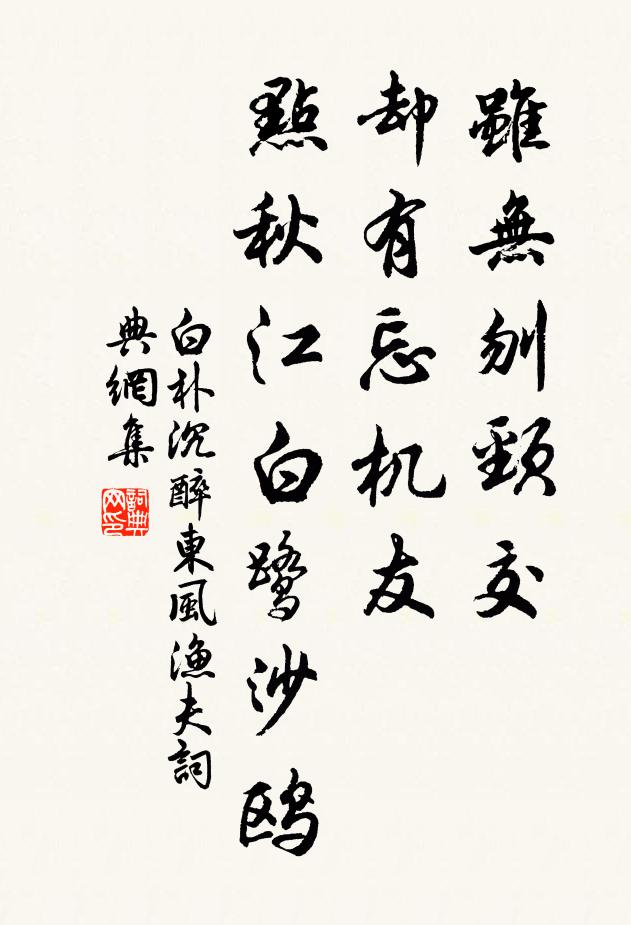 雖無刎頸交
却有忘机友
點秋江白鷺沙鸥
白朴沉醉東風漁夫詞
典網集
詞典网印